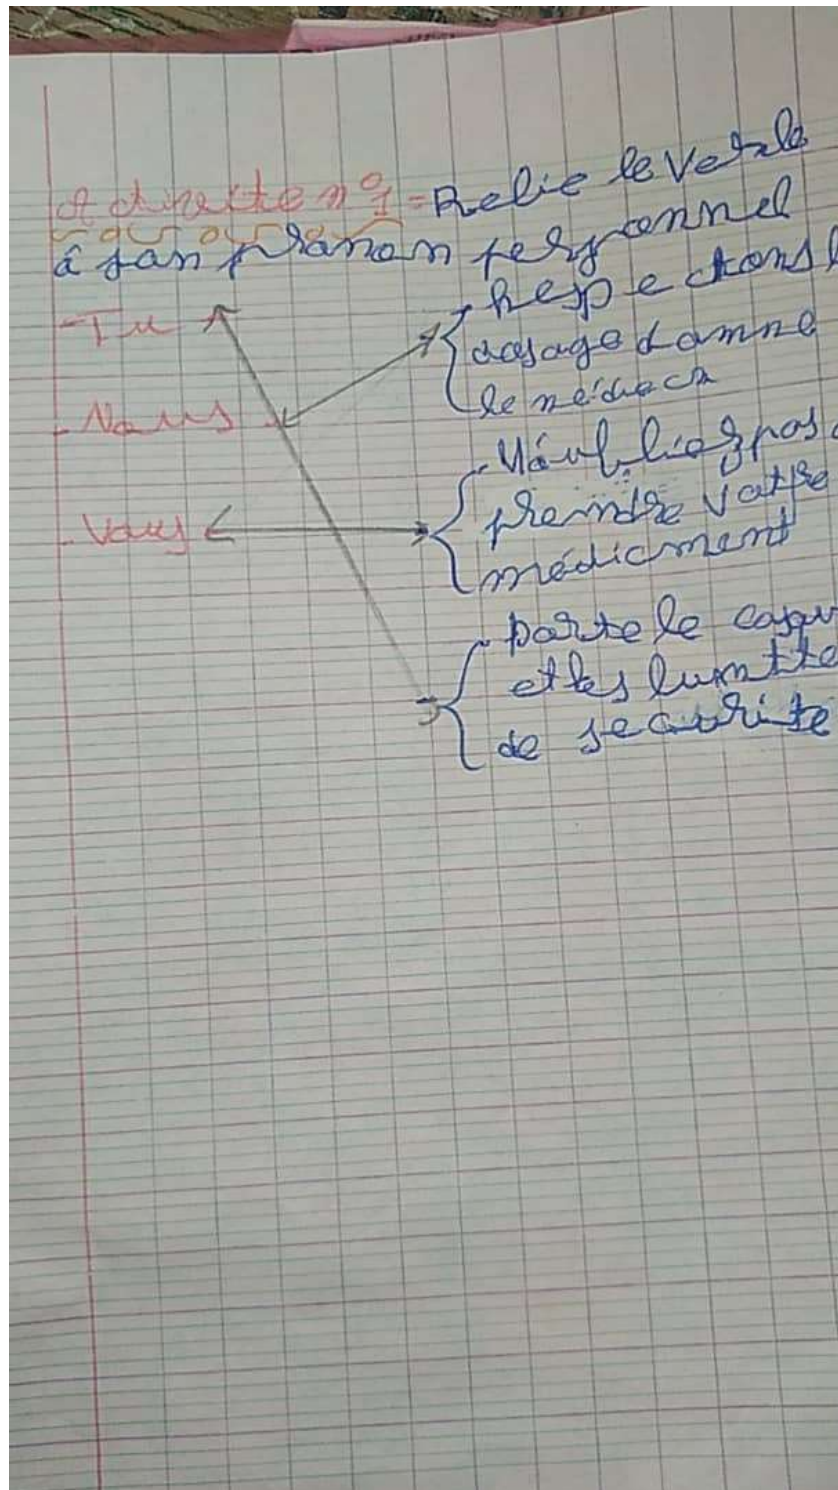 Activitée n°1 = Relie le verbe
à son pronom personnel
- Tu
- respectons l
dosage donnne
le médiecn
- Nous
- N'oubliez pas d
preindre votre
médicment
- Vous
- porte le casqu
et les luntte
de securite